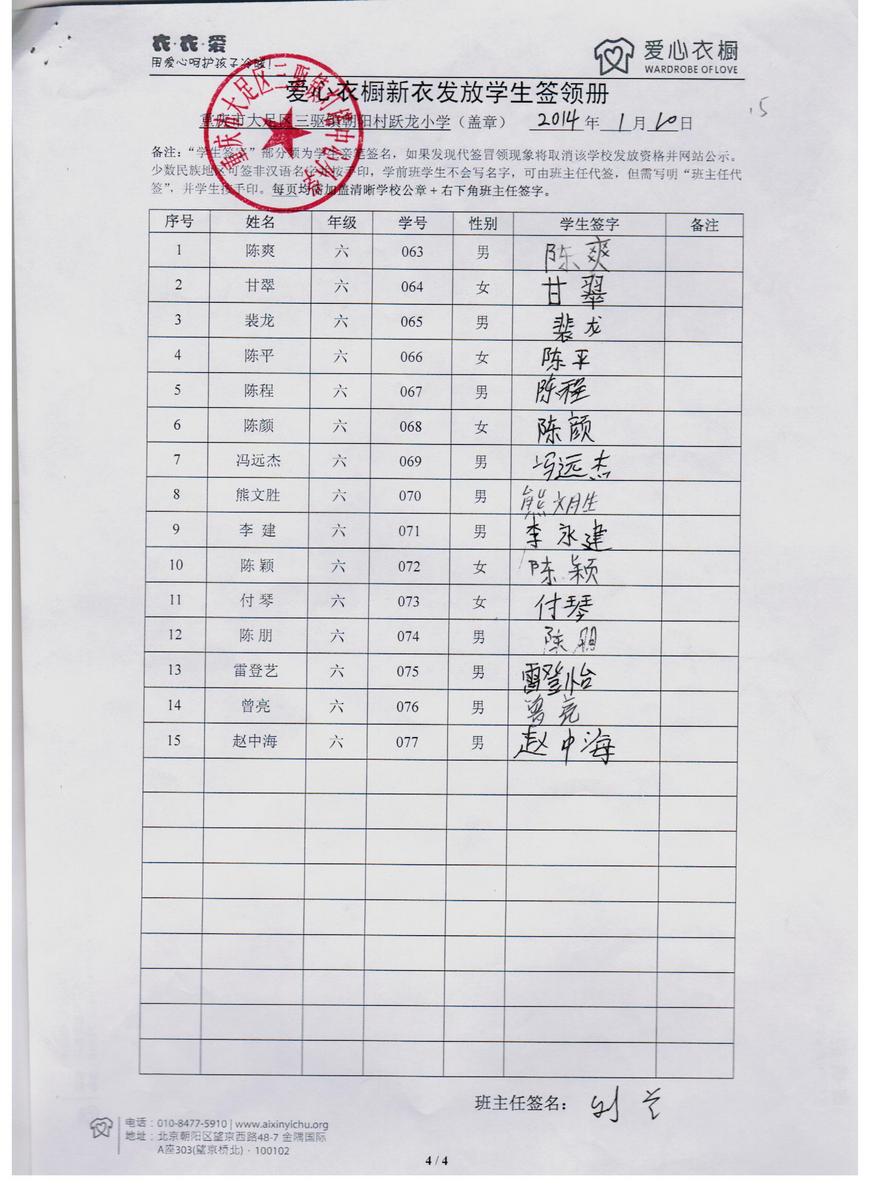 衣·衣·爱
用爱心呵护孩子冷暖！
爱心衣橱
WARDROBE OF LOVE
爱心衣橱新衣发放学生签领册
15
重庆市大足区三驱镇朝阳村跃龙小学（盖章） 2014 年 1 月 10 日
备注：“学生签字”部分须为学生亲笔签名，如果发现代签冒领现象将取消该学校发放资格并网站公示。
少数民族地区可签非汉语名字并按手印，学前班学生不会写名字，可由班主任代签，但需写明“班主任代
签”，并学生按手印。每页均需加盖清晰学校公章＋右下角班主任签字。
序号 姓名 年级 学号 性别 学生签字 备注
1 陈爽 六 063 男 陈爽
2 甘翠 六 064 女 甘翠
3 裴龙 六 065 男 裴龙
4 陈平 六 066 女 陈平
5 陈程 六 067 男 陈程
6 陈颜 六 068 女 陈颜
7 冯远杰 六 069 男 冯远杰
8 熊文胜 六 070 男 熊文胜
9 李 建 六 071 男 李永建
10 陈 颖 六 072 女 陈颖
11 付 琴 六 073 女 付琴
12 陈 朋 六 074 男 陈朋
13 雷登艺 六 075 男 雷登怡
14 曾亮 六 076 男 曾亮
15 赵中海 六 077 男 赵中海
班主任签名：
电话：010-8477-5910 | www.aixinyichu.org
地址：北京朝阳区望京西路48-7 金隅国际
A座303(望京桥北)·100102
4 / 4